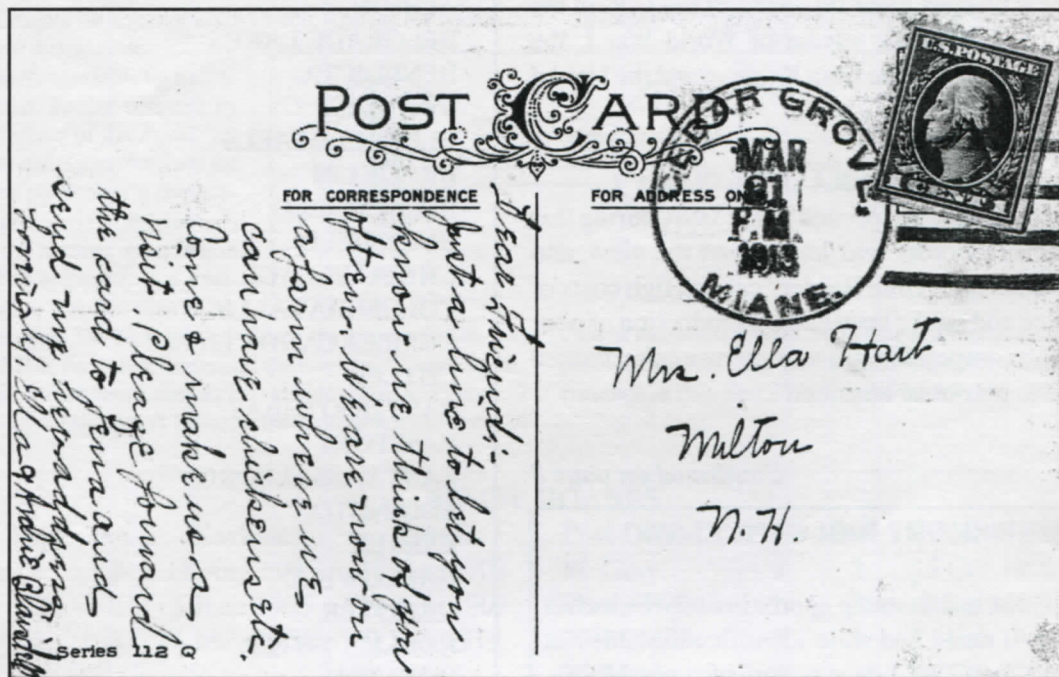 POST CARD
FOR CORRESPONDENCE
FOR ADDRESS ON
CEDAR GROVE
MAR
21
P.M
1913
MIANE.
U.S. POSTAGE
CENTS
Dear Friend:-
Just a line to let you
know we think of you
often. We are now on
a farm where we
can have chickens etc.
Come & make us a
visit. Please forward
the card to Fernald
send my
Ella &
Mrs Ella Hart
Milton
N.H.
Series 112 Q